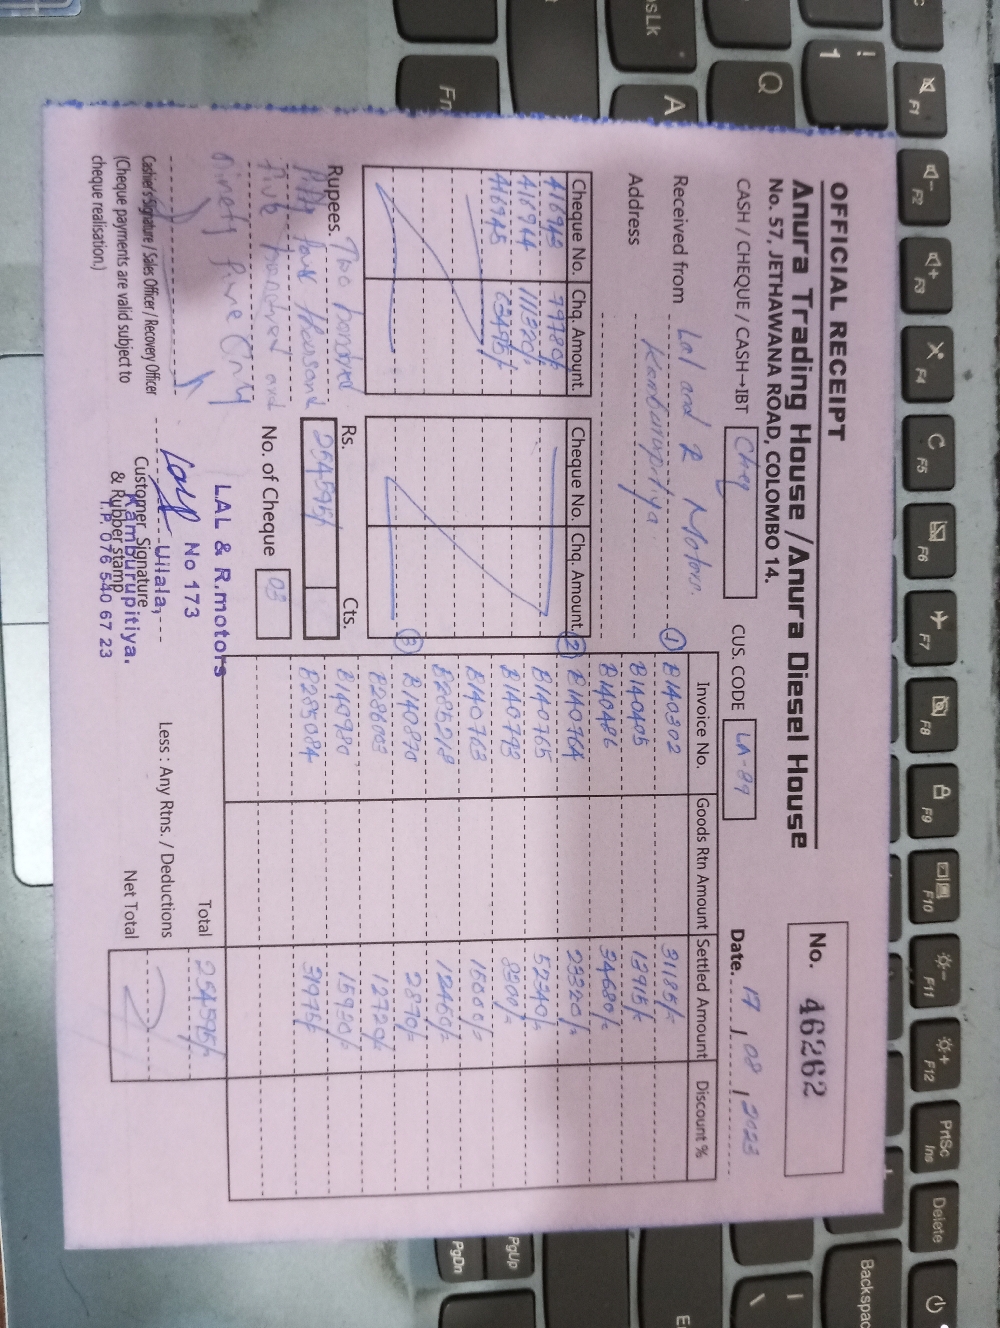 OFFICIAL RECEIPT
Anura Trading House / Anura Diesel House
No. 57, JETHAWANA ROAD, COLOMBO 14.
No. 46262
CASH / CHEQUE / CASH→IBT Cheq
CUS. CODE LA-89
Date. 17 / 08 / 2023
Received from Lal and R Motors.
Address Kamburupitiya
Cheque No. Chq. Amount. Cheque No. Chq. Amount.
416943 79780/-
416944 111320/-
416945 23495/-
Invoice No. Goods Rtn Amount Settled Amount Discount %
① B140302 31185/-
B140405 13915/-
B140486 34680/-
② B140764 23320/-
B140765 52340/-
B140793 8300/-
B140763 15000/-
B285218 12450/-
③ B140870 2870/-
B286003 12720/-
B140980
B285094 3975/-
Rupees. Two hundred
Fifty four thousand
Five hundred and
Ninety five Only
Rs. Cts.
254595/-
No. of Cheque 03
Total 254595/-
Less : Any Rtns. / Deductions
Net Total
Cashier's Signature / Sales Officer / Recovery Officer
(Cheque payments are valid subject to
cheque realisation.)
LAL & R.motors
No 173
Uilala,
Kamburupitiya.
T.P. 076 540 67 23
Customer Signature
& Rubber stamp
PsLk
Fn
A
Q
!
1
F1
F2
F3
F4
F5
F6
F7
F8
F9
F10
F11
F12
PrtSc
Ins
Delete
Backspace
PgUp
PgDn